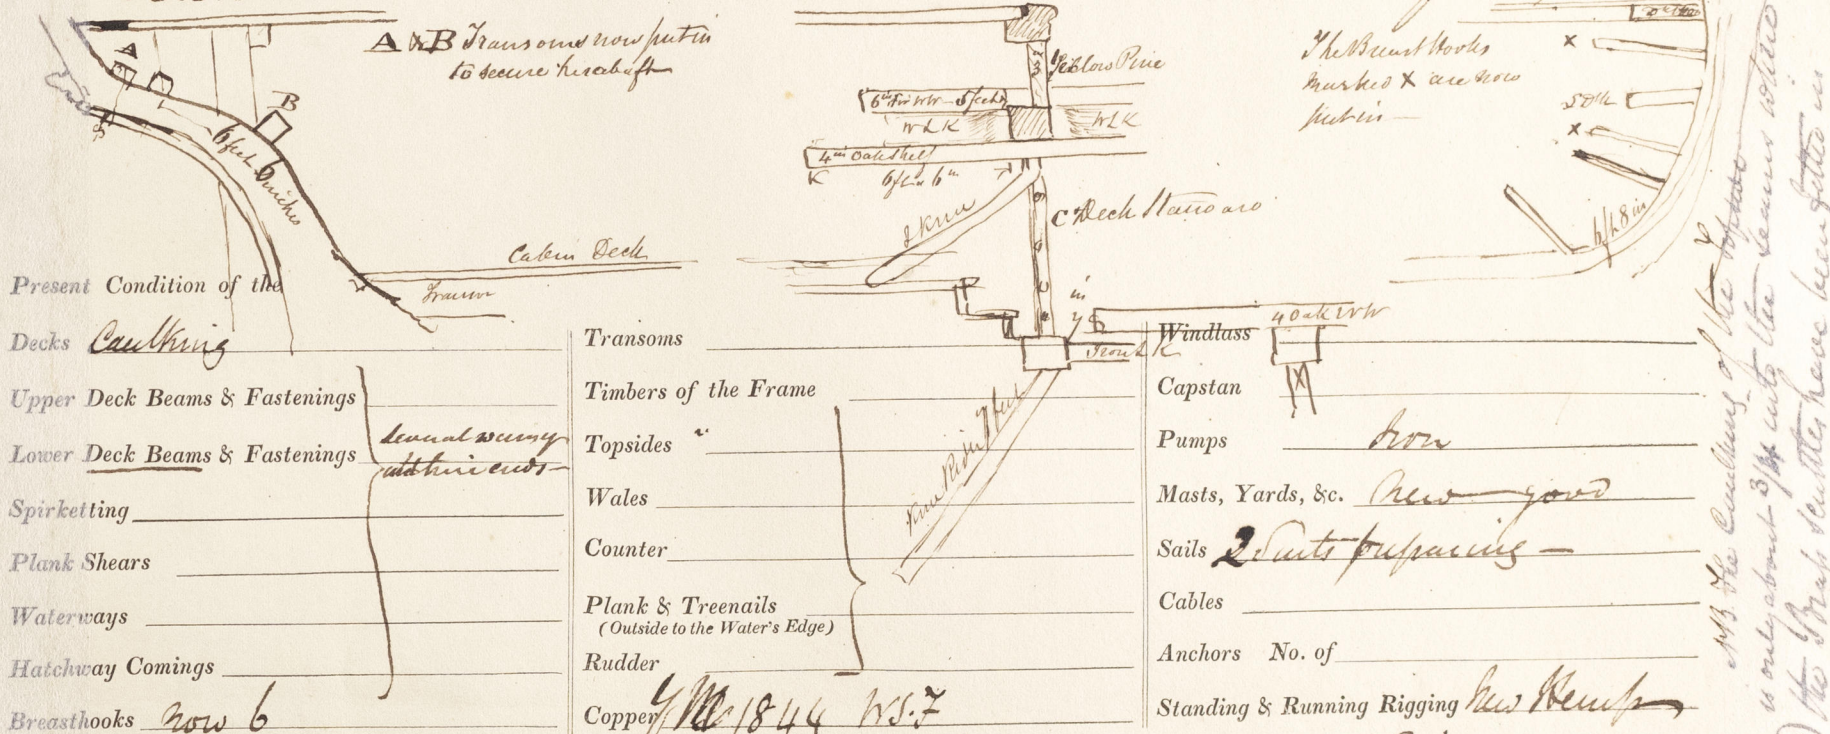 A & B Transoms now put in
to secure her abaft
A
B
6 feet 6 inches
Cabin Deck
Transom
3
Yellow Pine
6in Fir WW 5 feet
WLK
WLK
4in Oak Shelf
6ft & 6in
I Knee
C Deck Standard
4 Oak WW
Iron LK
The Breast Hooks
marked X are now
put in
X
X
6ft 8in
Present Condition of the
Decks Caulking
Upper Deck Beams & Fastenings
Lower Deck Beams & Fastenings
several
ends
Spirketting
Plank Shears
Waterways
Hatchway Comings
Breasthooks now 6
Transoms
Timbers of the Frame
Topsides "
Wales
Counter
Plank & Treenails
(Outside to the Water's Edge)
Rudder
Copper 1844
Windlass
Capstan
Pumps Iron
Masts, Yards, &c. New good
Sails 2 Suits preparing
Cables
Anchors No. of
Standing & Running Rigging New Hemp
NB The Caulking of the Topsides
is only about 3/4 into the seams
the Brass scuttles have been fitted in